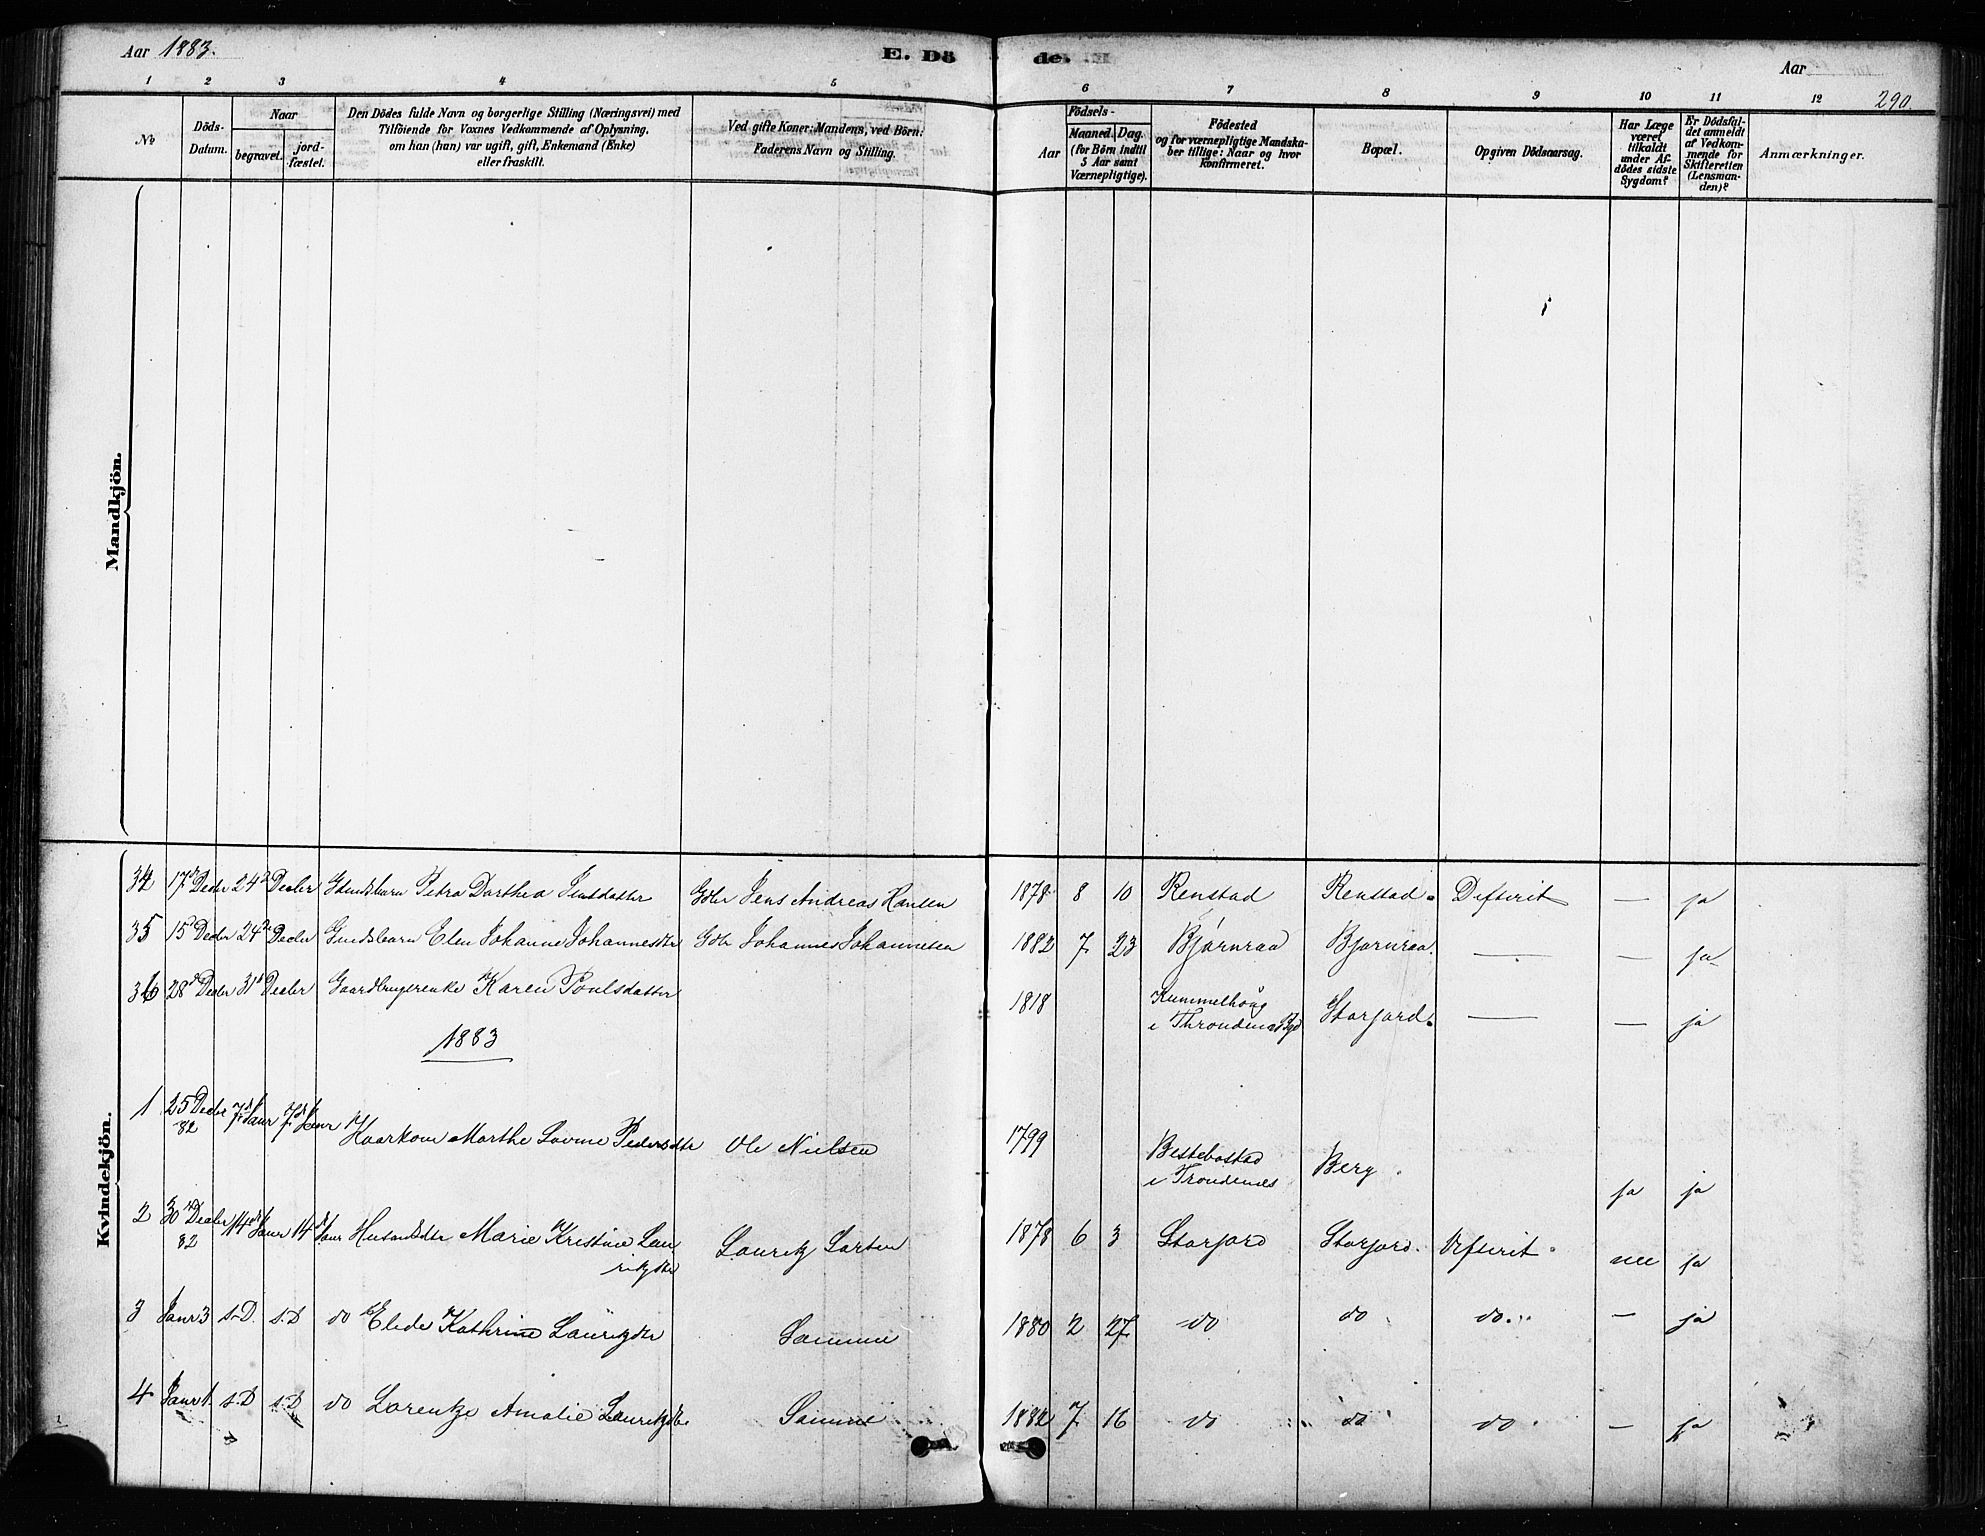 Aar 1883.
E. Dö
de.
Aar
290
1 2 3 4 5 6 7 8 9 10 11 12
No
Döds-
Datum.
Naar
begravet.
jord-
fæstet.
Den Dödes fulde Navn og borgerlige Stilling (Næringsvei) med
Tilföiende for Voxnes Vedkommende af Oplysning,
om han (hun) var ugift, gift, Enkemand (Enke)
eller fraskilt.
Ved gifte Koner: Mandens, ved Börn:
Faderens Navn og Stilling.
Födsels-
Aar
Maaned.
Dag.
(for Börn indtil
5 Aar samt
Værnepligtige).
Födested
og for værnepligtige Mandska-
ber tillige: Naar og hvor
konfirmeret.
Bopæl.
Opgiven Dödsaarsag.
Har Læge
været
tilkaldt
under Af-
dödes sidste
Sygdom?
Er Dödsfal-
det anmeldt
af Vedkom-
mende for
Skifteretten
(Lensman-
den)?
Anmærkninger.
Mandkjön.
Kvindekjön.
34 17d Decbr 24d Decbr Petra Dorthea Jensdatter Gdbr Jens Andreas Hansen 1878 8 10 Renstad Renstad. Difterit — ja
35 15d Decbr 24d Decbr Elen Johanne Johannesdtr Gdbr Johannes Johannesen 1882 7 23 Bjørnraa Bjørnraa. — — ja
36 28d Decbr 31d Decbr Gaardbrugerenke Karen Poulsdatter 1818 Kummelhaug
i Throndenæs Storjord. — — ja
1883
1 25 Decbr
82 7d Janr 7d Janr Marthe Pedersdtr Ole Nielsen 1799 Bestebostad
i Trondenæs Berg. ja ja
2 30 Decbr
82 14d Janr 14d Janr Marie Kristine Lau
ritzdtr Lauritz Larsen 1878 6 3 Storjord Storjord. Difterit. nei ja
3 Janr 3 s.D. s.D do Elide Kathrine Lauritzdtr Samme 1880 2 27 do do do. — ja
4 Janr 1. s.D s.D do Lorentze Amalie Lauritzdtr. Samme 1882 7 16 do do do — ja